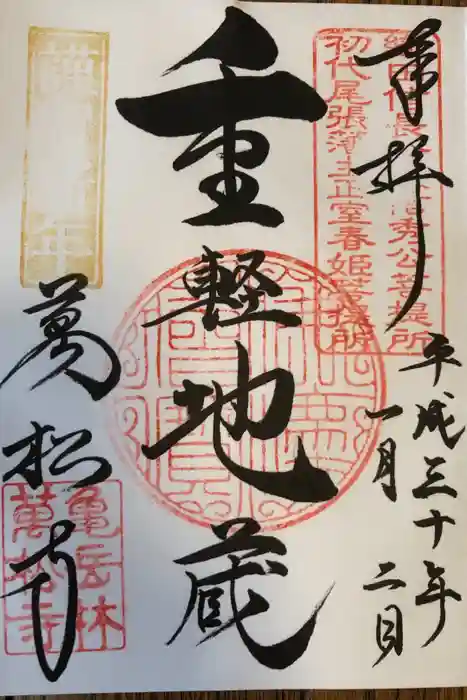 奉拝
織田信長
秀公菩提所
初代尾張藩主正室春姫菩提所
平成三十年
一月二日
重軽地蔵
萬松寺
亀岳林
萬松寺